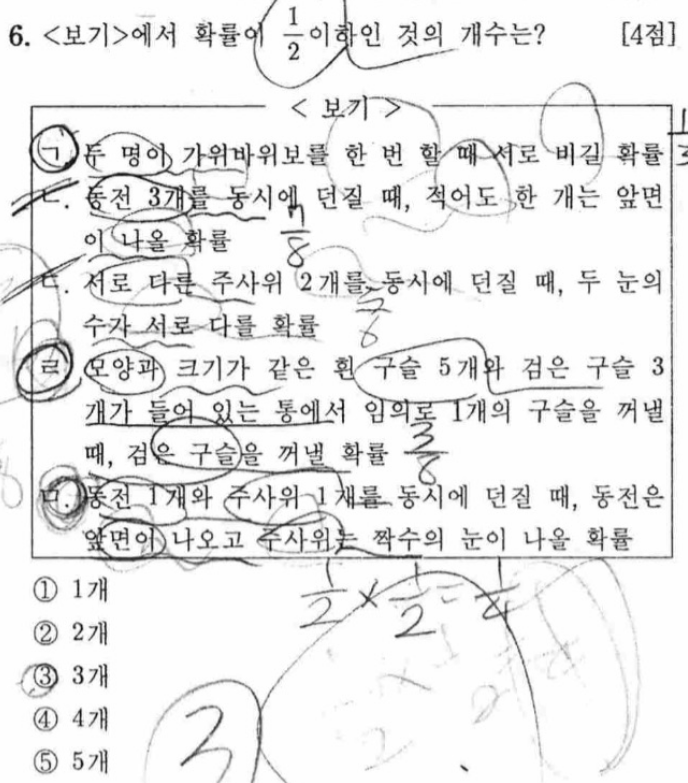 6. <보기>에서 확률이 1/2이하인 것의 개수는? [4점]
< 보기 >
ㄱ. 두 명이 가위바위보를 한 번 할 때 서로 비길 확률 1/3
ㄴ. 동전 3개를 동시에 던질 때, 적어도 한 개는 앞면
이 나올 확률 7/8
ㄷ. 서로 다른 주사위 2개를 동시에 던질 때, 두 눈의
수가 서로 다를 확률 5/6
ㄹ. 모양과 크기가 같은 흰 구슬 5개와 검은 구슬 3
개가 들어 있는 통에서 임의로 1개의 구슬을 꺼낼
때, 검은 구슬을 꺼낼 확률 3/8
ㅁ. 동전 1개와 주사위 1개를 동시에 던질 때, 동전은
앞면이 나오고 주사위는 짝수의 눈이 나올 확률
1/2 × 1/2 = 1/4
① 1개
② 2개
③ 3개
④ 4개
⑤ 5개
3